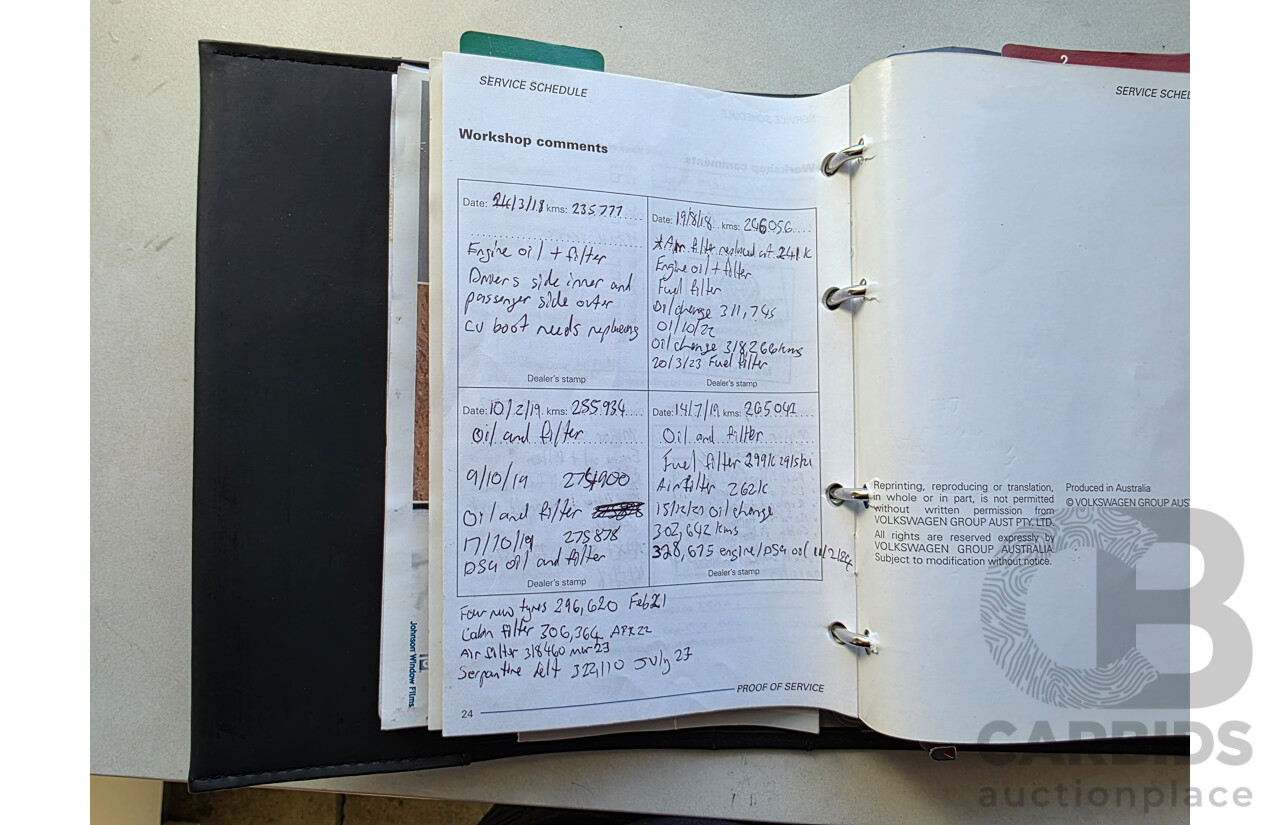 SERVICE SCHEDULE
Workshop comments
Date: 24/3/18 kms: 235777
Engine oil + filter
Drivers side inner and
passenger side outer
CV boot needs replacing
Dealer's stamp
Date: 19/8/18 kms: 246056
*Air filter replaced at 241k
Engine oil + filter
Fuel filter
Oil change 311,745
01/10/22
Oil change 318,266kms
20/3/23 Fuel filter
Dealer's stamp
Date: 10/2/19 kms: 255934
Oil and filter
9/10/19 275900
Oil and filter
17/10/19 275878
DSG oil and filter
Dealer's stamp
Date: 14/7/19 kms: 265041
Oil and filter
Fuel filter 299k 29/5/21
Air filter 262k
15/12/21 oil change
302,642 kms
328,675 engine/DSG oil
Dealer's stamp
Four new tyres 296,620 Feb21
Cabin filter 306,364 APR 22
Air filter 318460 mar 23
Serpantine belt 322,110 July 23
24
PROOF OF SERVICE
2
SERVICE SCHE
Reprinting, reproducing or translation,
in whole or in part, is not permitted
without written permission from
VOLKSWAGEN GROUP AUST PTY. LTD.
All rights are reserved expressly by
VOLKSWAGEN GROUP AUSTRALIA.
Subject to modification without notice.
Produced in Australia
© VOLKSWAGEN GROUP AUST
Johnson Window Films
CARBIDS
auctionplace